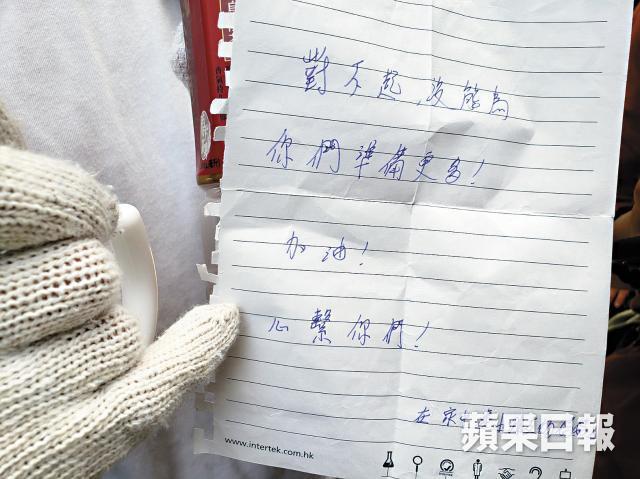 對不起，沒能為
你們準備更多！
加油！
心繫你們！
在家
蘋果日報
www.intertek.com.hk